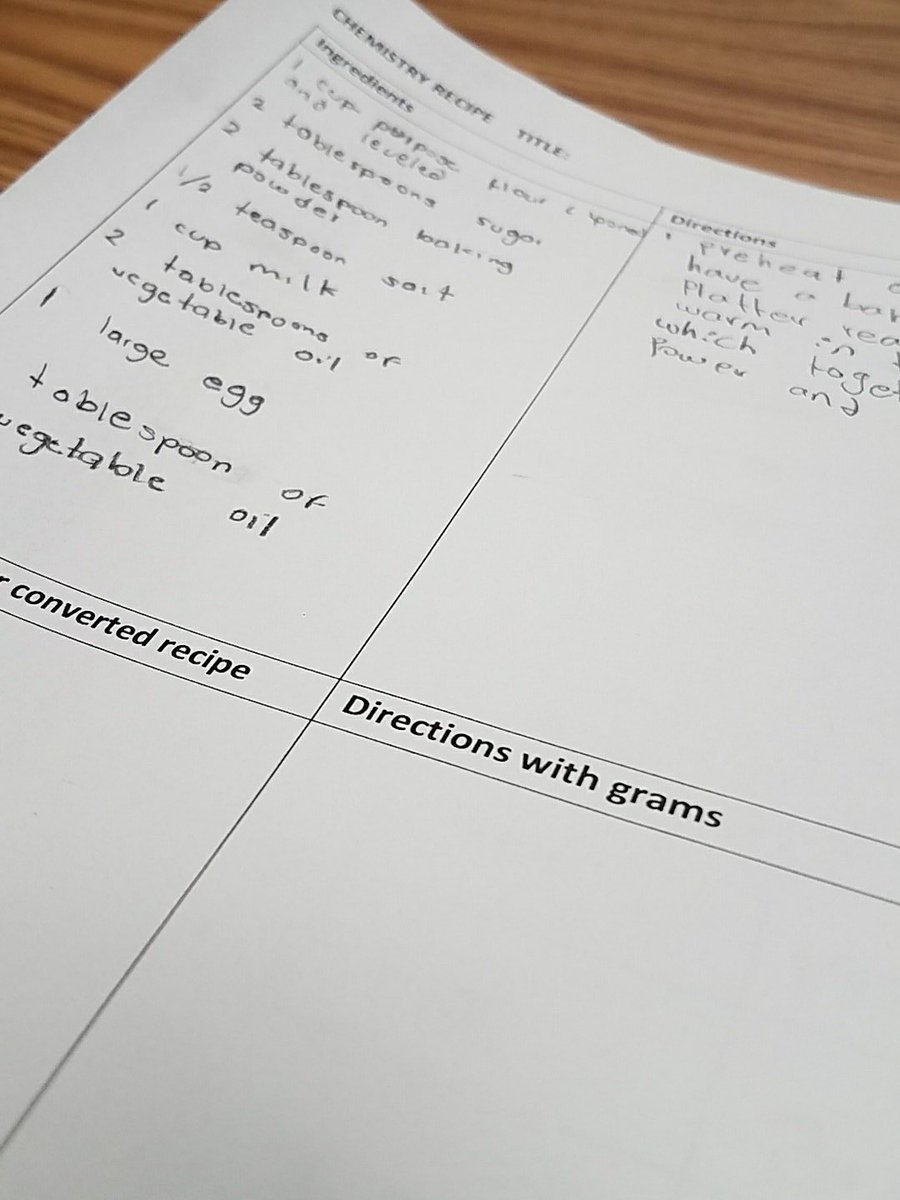 CHEMISTRY RECIPE TITLE:
Ingredients
1 cup purpose flour (
and leveled
2 tablespoons sugar
2 tablespoon baking
powder
1/2 teaspoon salt
1 cup milk
2 tablespoons of
vegetable oil
1 large egg
tablespoon of
vegetable oil
Directions
preheat
have a
Platter
warm in
which
Power and
converted recipe
Directions with grams